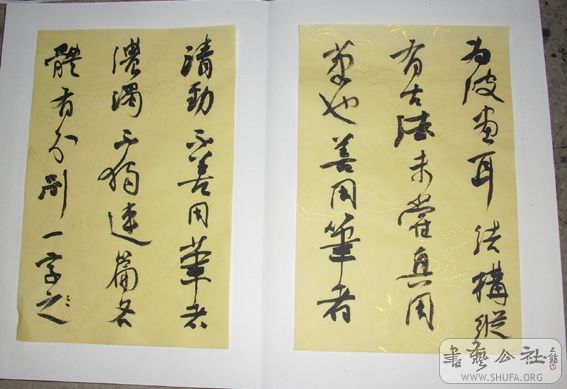 為波畫耳結構縱
有古法未嘗真用
筆也善用筆者
清勁不善用筆者
濃濁不獨連篇各
體有分別一字之
書藝公社
WWW.SHUFA.ORG